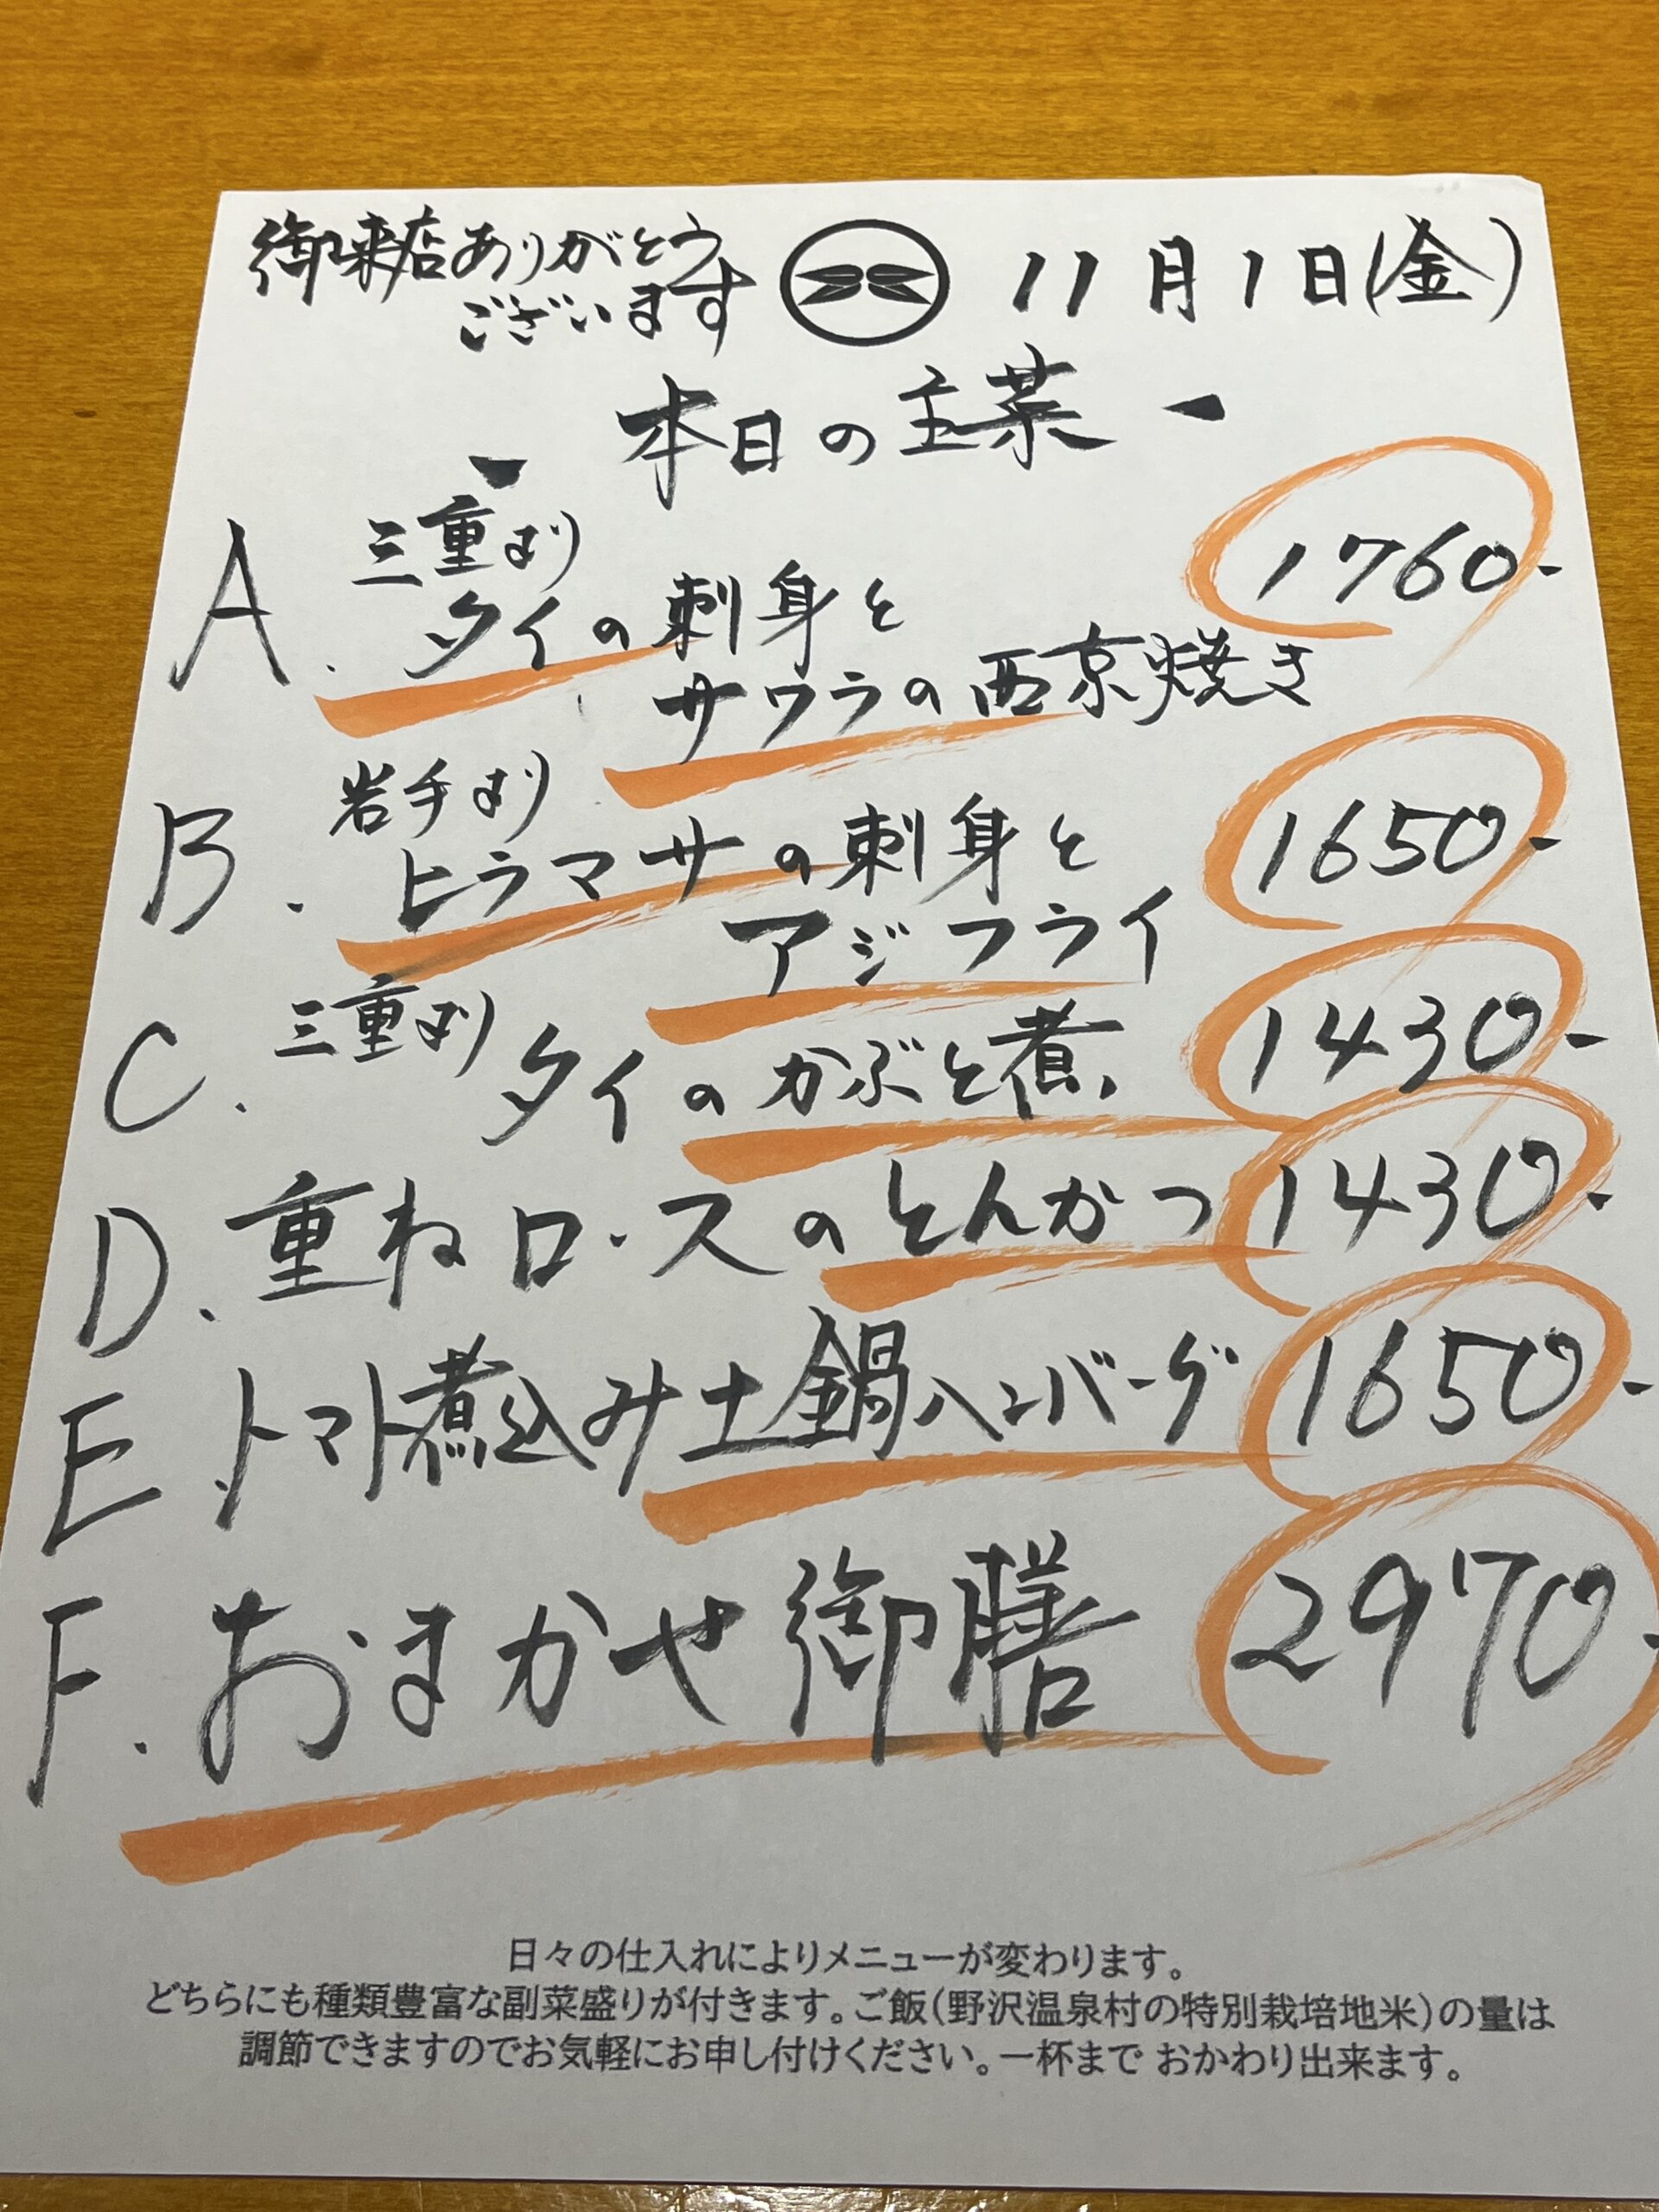 御来店ありがとう
ございます
11月1日(金)
- 本日の主菜 -
A. 三重より
タイの刺身と
サワラの西京焼き
1760-
B. 岩手より
ヒラマサの刺身と
アジフライ
1650-
C. 三重より タイのかぶと煮 1430-
D. 重ねロースのとんかつ 1430-
E. トマト煮込み土鍋ハンバーグ 1650-
F. おまかせ御膳 2970-
日々の仕入れによりメニューが変わります。
どちらにも種類豊富な副菜盛りが付きます。ご飯(野沢温泉村の特別栽培地米)の量は
調節できますのでお気軽にお申し付けください。一杯まで おかわり出来ます。